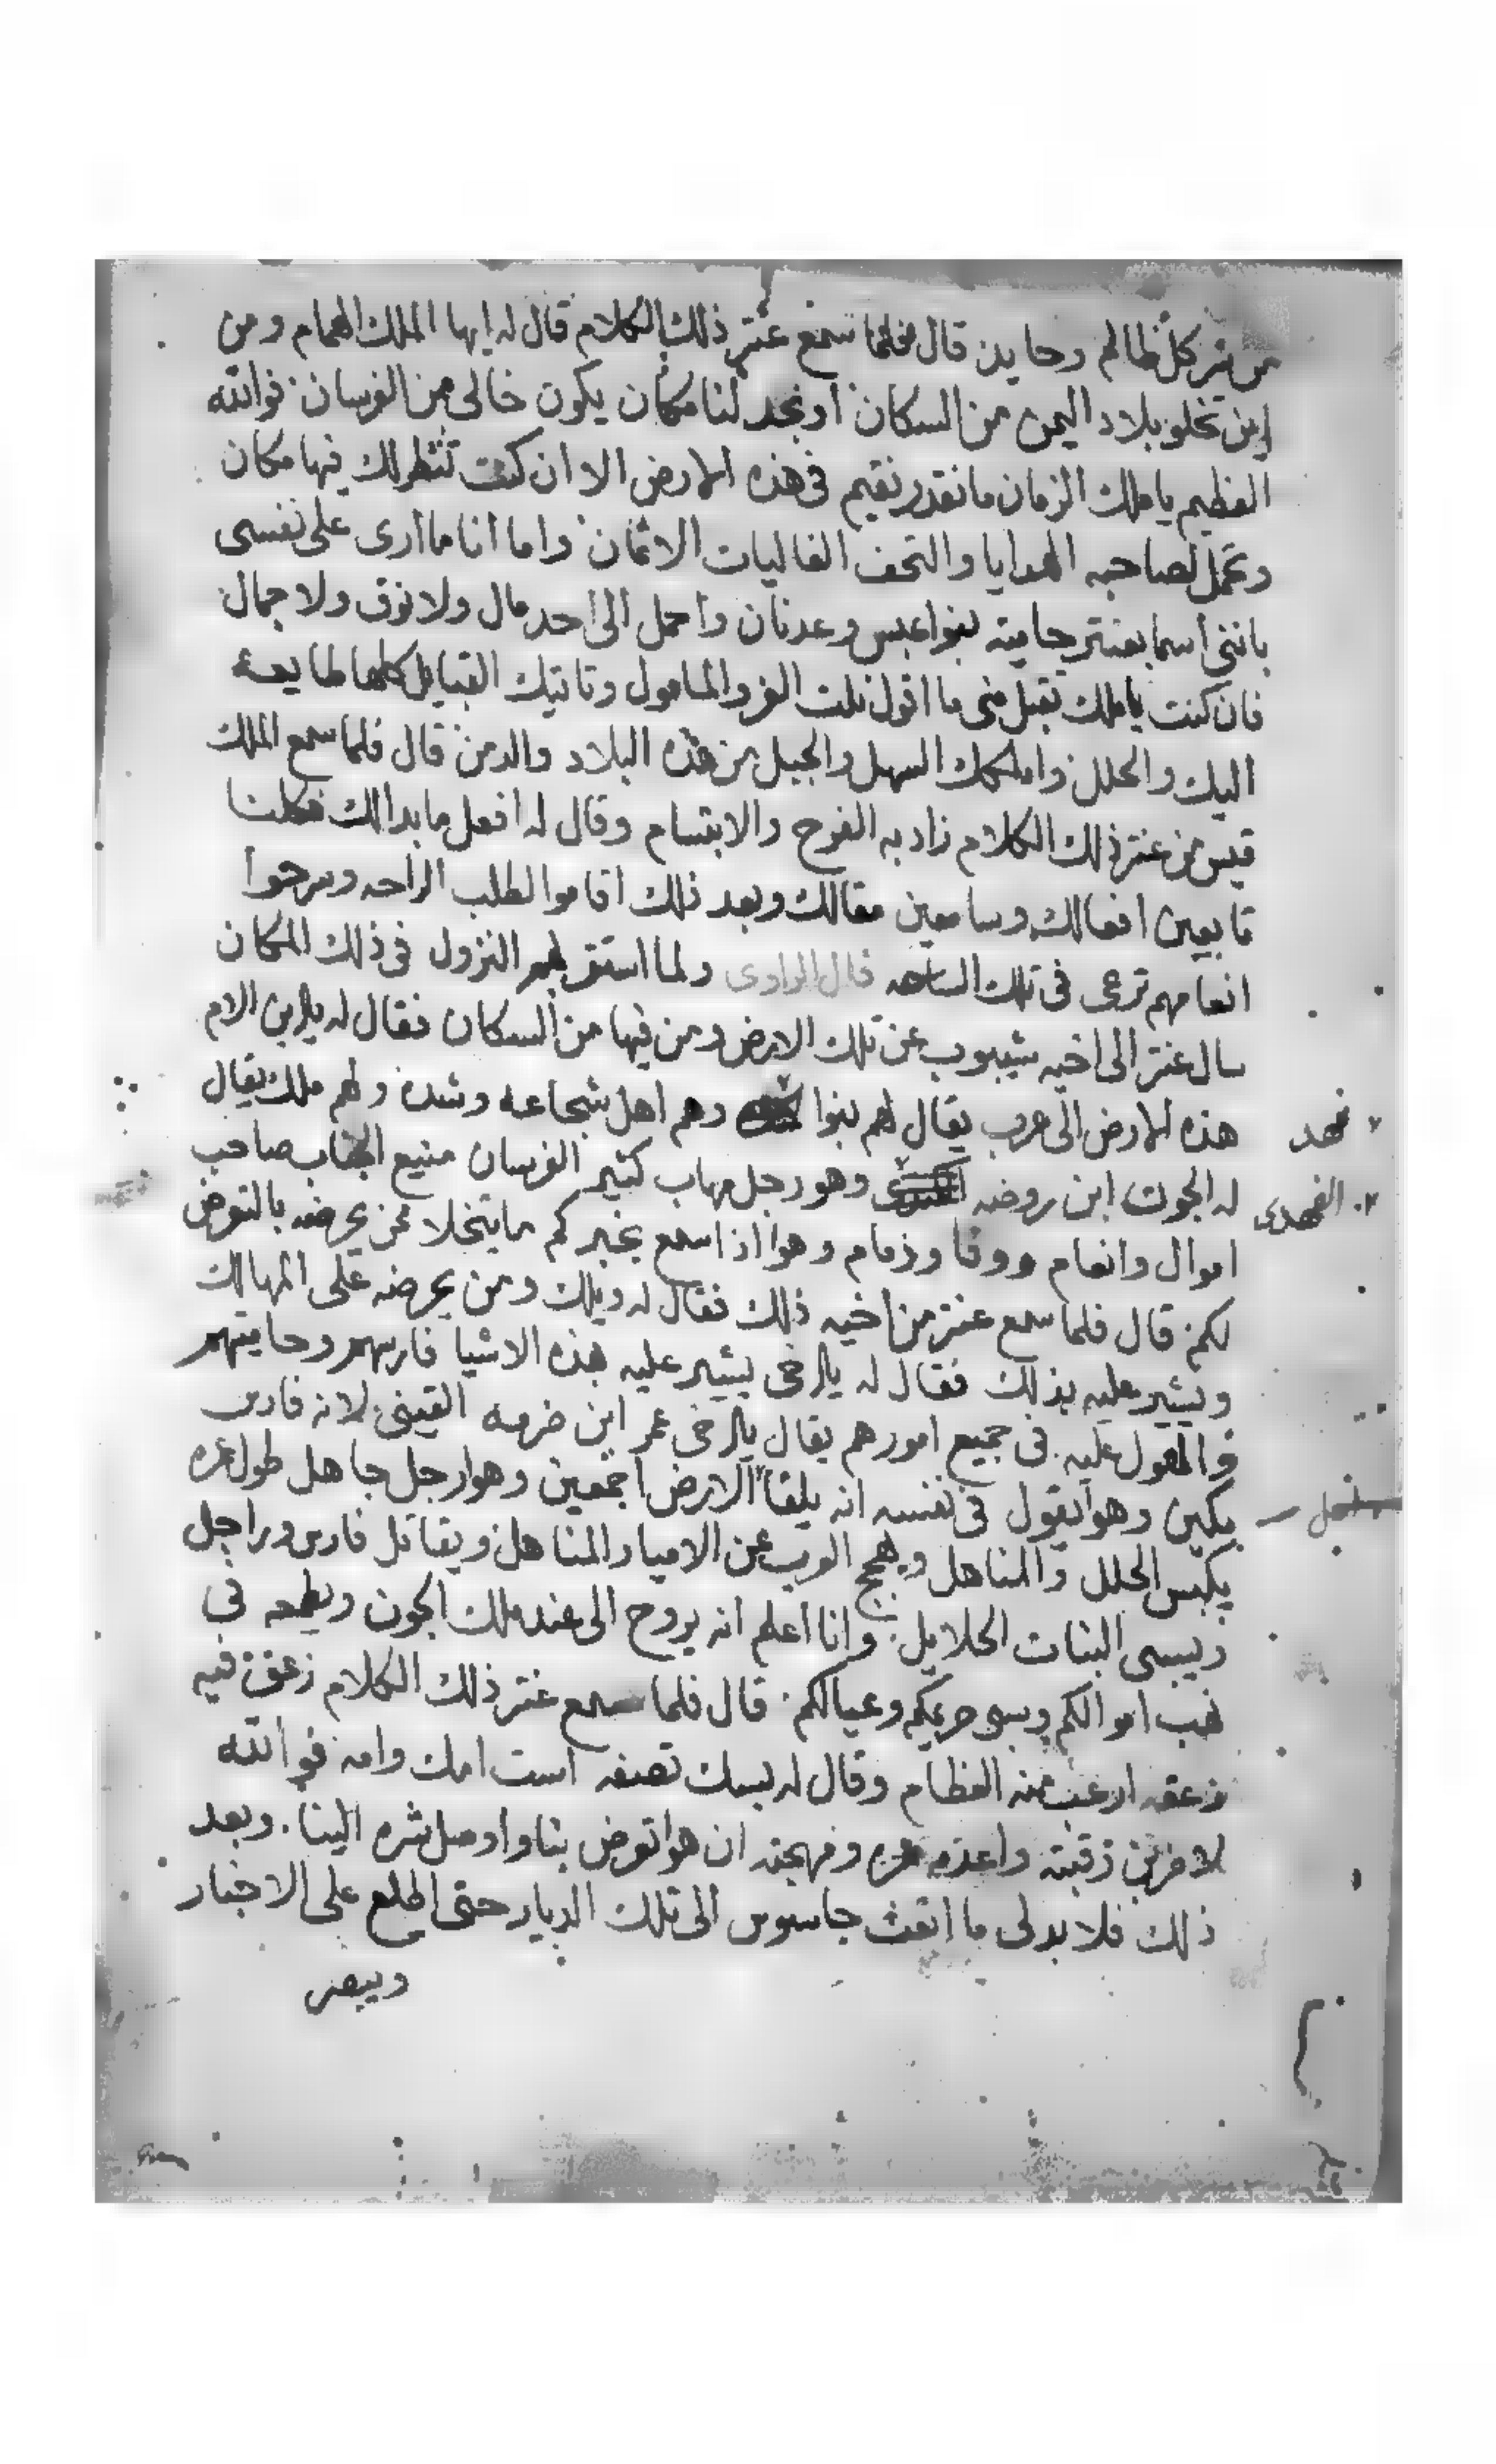 من شر كل ظالم وحايد قال فلما سمع عنتر ذلك الكلام قال له ايها الملك الهمام ومن
اين تخلو بلاد اليمن من السكان او نجد لنا مكان يكون خالى من الفرسان فوالله
العظيم يا ملك الزمان ما نقدر نقيم فى هذه الارض الا ان كنت تنظر لك فيها مكان
وتحمل لصاحبه الهدايا والتحف الغاليات الاثمان واما انا ما أرى على نفسى
باننى اسما بعنتر حامية بنوا عبس وعدنان واحمل الى احد مال ولا نوق ولا جمال
فان كنت يا ملك تقبل منى ما اقول نلت العز والمامول وتاتيك القبايل كلها طايعة
اليك والحلل واملكك السهل والجبل من هذه البلاد والدمن قال فلما سمع الملك
قيس من عنتر ذلك الكلام زاد به الفرح والابتسام وقال له افعل ما بدالك فكلنا
تابعين افعالك وسامعين مقالك وبعد ذلك اقاموا لطلب الراحه وسرحوا
انعامهم ترعى فى تلك الساحه قال الراوى ولما استقر بهم النزول فى ذلك المكان
سال عنتر الى اخيه شيبوب عن تلك الارض ومن فيها من السكان فقال له يا ابن الام
هذه الارض الى عرب يقال لهم بنوا وهم اهل شجاعه وشده ولهم ملك يقال
فهد
له الجون ابن روضه وهو رجل مهاب كثير الفرسان منيع الجناب صاحب
الفهدى
اموال وانعام ووفا وزمام وهوا اذا سمع بخبركم ما يتخلا ممن يحرضه بالتعرض
لكم قال فلما سمع عنتر من اخيه ذلك فقال له ويلك ومن يحرضه على المهالك
ويشير عليه بذلك فقال له يا اخى يشير عليه بهذه الاشيا فارسهم وحاميتهم
والمعول عليه فى جميع امورهم يقال يا اخى عمر ابن ضرمه القينى لانه فارس
يكين وهوا يقول فى نفسه انه يلقا الارض اجمعين وهوا رجل جاهل طول عمره
يكبس الحلل والمناهل ويهجج العرب عن الامياه والمناهل ويقاتل فارس وراجل
ويسبى البنات الحلايل وانا اعلم انه يروح الى عند ملك الجون ويطمعه فى
نهب اموالكم وسبى حريمكم وعيالكم قال فلما سمع عنتر ذلك الكلام زعق فيه
زعقه ارعب منه العظام وقال له است امك وامه فوالله
لاضربن رقبته واعدمه ومهجته ان هوا تعرض بنا واوصل شره الينا. وبعد
ذلك فلا بد لى ما ابعث جاسوس الى تلك الديار حتى اطلع على الاخبار
ويبصر